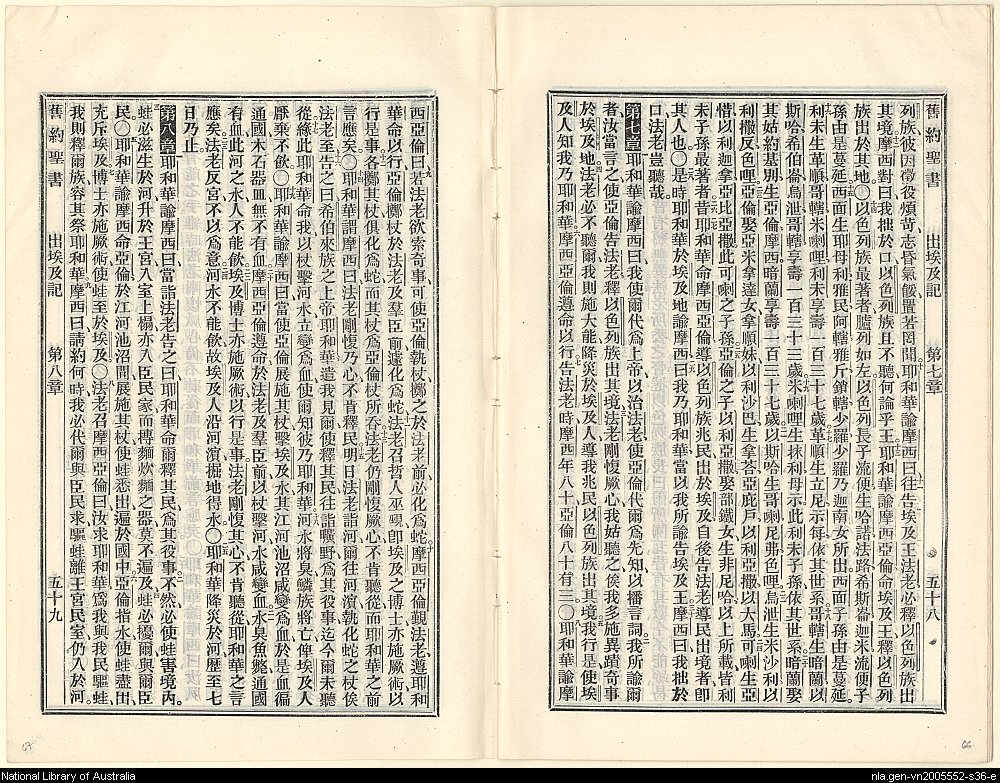 舊約聖書 出埃及記 第七章 五十八
列族彼因徵役煩苛志昏氣餒置若罔聞耶和華諭摩西曰往告埃及王法老必釋以色列族出
其境摩西對曰我拙於口以色列族且不聽何論乎王耶和華諭摩西亞倫命埃及王釋以色列
族出於其地〇以色列族最著者臚列如左以色列長子流便生哈諾法路希斯崙迦米流便子
孫由是蔓延西面生耶母利雅民阿轄雅斤鎖轄少羅少羅乃迦南女所出西面子孫由是蔓延
利未生革順哥轄米喇哩利未享壽一百三十七歲革順生立尼示每依其世系哥轄生暗蘭以
斯哈希伯崙烏泄哥轄享壽一百三十三歲米喇哩生抹利母示此利未子孫依其世系暗蘭娶
其姑約基別生亞倫摩西暗蘭享壽一百三十七歲以斯哈生哥喇尼弗色哩烏泄生米沙利以
利撒反色哩亞倫娶亞米拿達女拿順妹以利沙巴生拿荅亞庇戶以利亞撒以大馬可喇生亞
惜以利迦拿亞比亞撒此可喇之子孫亞倫之子以利亞撒娶部鐵女生非尼哈以上所載皆利
未子孫最著者昔耶和華命摩西亞倫導以色列族兆民出於埃及自後告法老導民出境者卽
其人也〇是時耶和華於埃及地諭摩西曰我乃耶和華當以我所諭告埃及王摩西曰我拙於
口法老豈聽哉
第七章 耶和華諭摩西曰我使爾代爲上帝以治法老使亞倫代爾爲先知以播言詞我所諭爾
者汝當言之使亞倫告法老釋以色列族出其境我使法老剛愎厥心我姑聽之俟我多施異蹟奇事
於埃及地法老必不聽爾我則施大能降災於埃及人導我兆民以色列族出其境我行是使埃
及人知我乃耶和華摩西亞倫遵命以行告法老時摩西年八十亞倫八十有三〇耶和華諭摩
西亞倫曰若法老欲索奇事可使亞倫執杖擲之於法老前必化爲蛇摩西亞倫覲法老遵耶和
華命以行亞倫擲杖於法老及羣臣前遽化爲蛇法老召哲人巫覡卽埃及之博士亦施厥術以
行是事各擲其杖俱化爲蛇而其杖爲亞倫杖所吞法老仍剛愎厥心不肯聽從而耶和華之前
言應矣〇耶和華謂摩西曰法老剛愎乃心不肯釋民明日法老詣河爾往河濱執化蛇之杖俟
法老至告之曰希伯來族之上帝耶和華遣我見爾使爾釋其民往詣曠野爲其役事迄今爾未聽
從緣此耶和華命我以杖擊河水立變爲血使爾知彼乃耶和華河水將臭鱗族將亡俾埃及人
厭棄不飲〇耶和華諭摩西曰當使亞倫展施其杖擊埃及水其江河池沼咸變爲血於是血徧
通國木石器皿無不有血摩西亞倫遵命於法老及羣臣前以杖擊河水咸變血水臭魚斃通國
有血此河之水人不能飲埃及博士亦施厥術以行是事法老剛愎其心不肯聽從耶和華之言
應矣法老反宮不以爲意河水不能飲故埃及人沿河濱掘地得水〇耶和華降災於河歷至七
日乃止
第八章 耶和華諭摩西曰當詣法老告之曰耶和華命爾釋其民爲其役事不然必使蛙害境內
蛙必滋生於河升於王宮入室上榻亦入臣民家而摶麵炊麵之器莫不遍及蛙必擾爾與爾臣
民〇耶和華諭摩西命亞倫於江河池沼間展施其杖使蛙悉出遍於國中亞倫指水使蛙盡出
充斥埃及博士亦施厥術使蛙至於埃及〇法老召摩西亞倫曰汝求耶和華爲我與我民驅蛙
我則釋爾族容其祭耶和華摩西曰請約何時我必代爾與臣民求驅蛙離王宮民室仍入於河
舊約聖書 出埃及記 第八章 五十九
66
National Library of Australia
nla.gen-vn2005552-s36-e